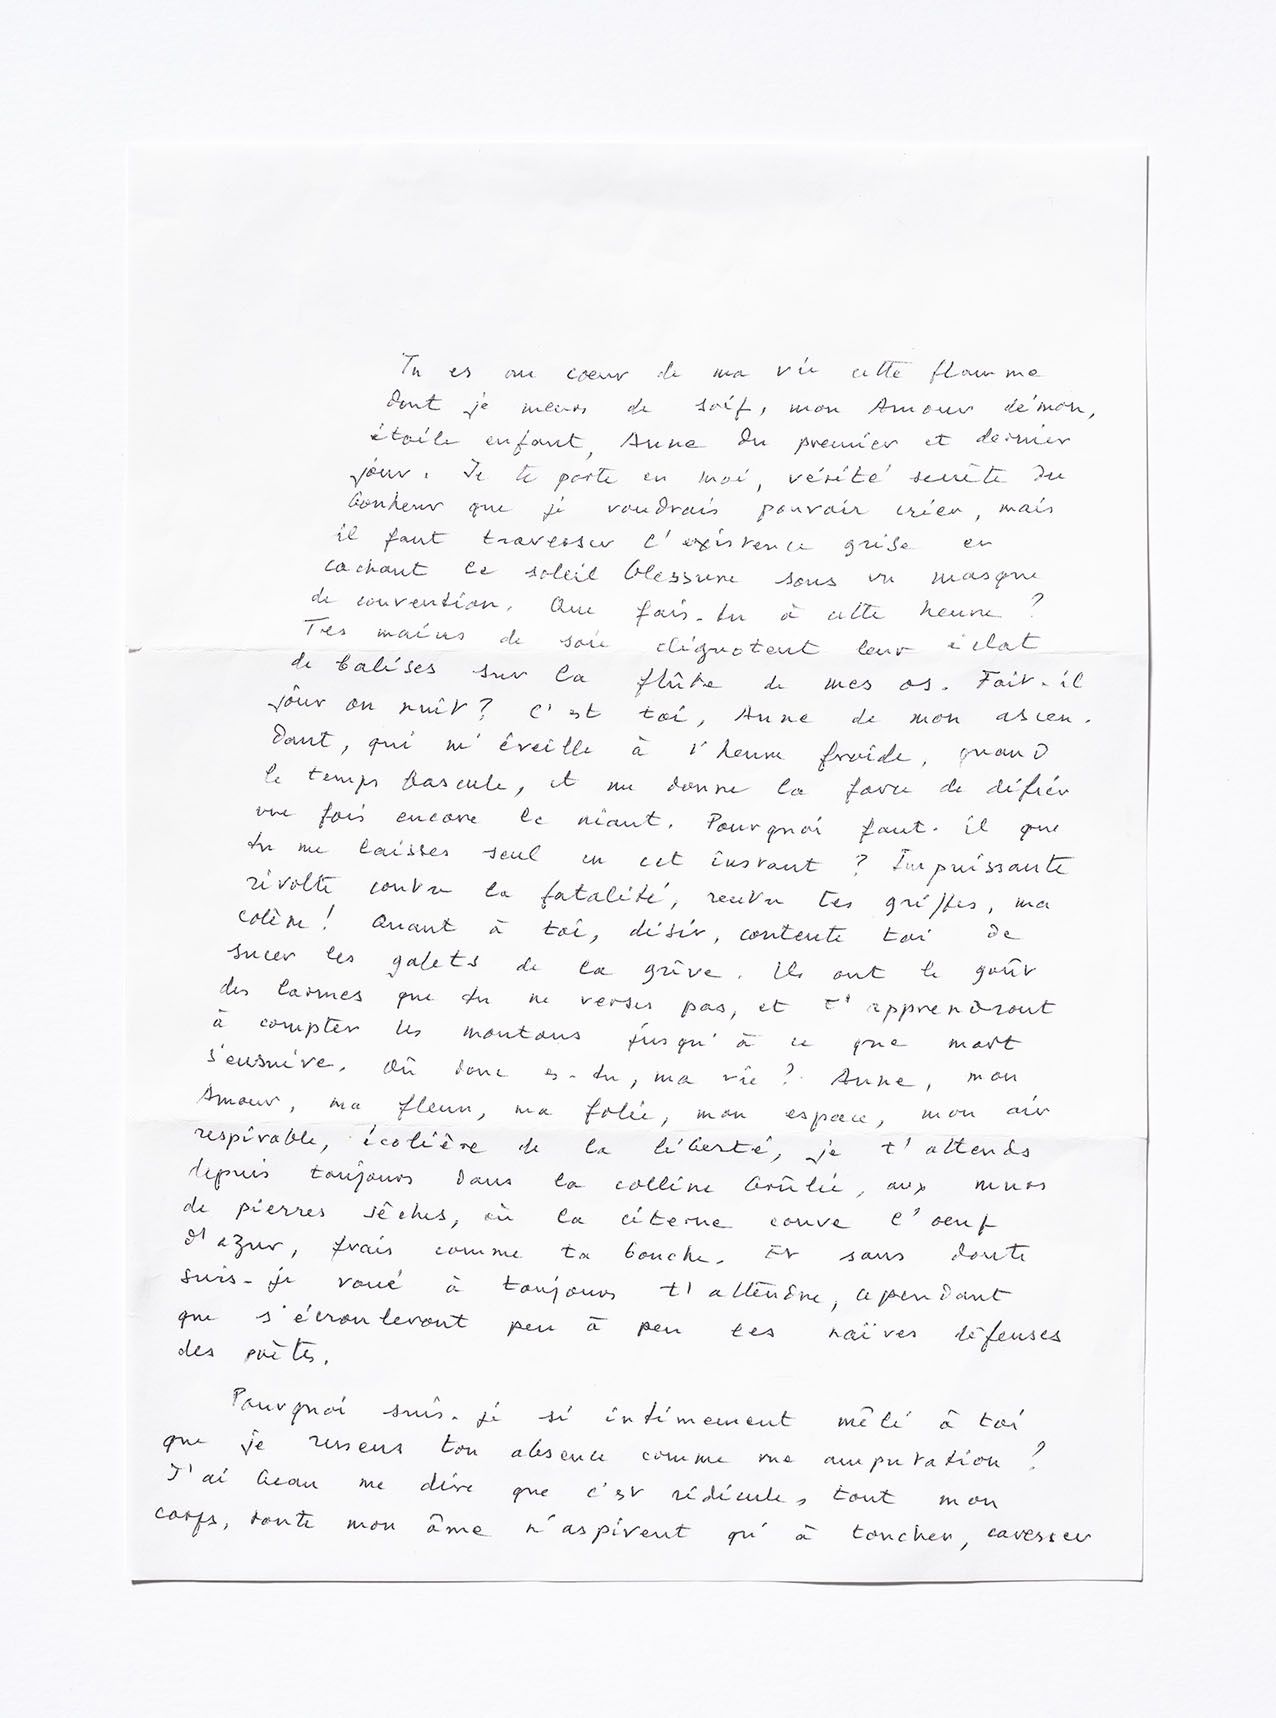 Tu es au coeur de ma vie cette flamme
dont je meurs de soif, mon Amour démon,
étoile enfant, Anne du premier et dernier
jour. Je te porte en moi, vérité secrète du
bonheur que je voudrais pouvoir crier, mais
il faut traverser l'existence grise en
cachant ce soleil blessure sous un masque
de convention. Que fais-tu à cette heure ?
Tes mains de soie clignotent leur éclat
de balises sur la flûte de mes os. Fait-il
jour ou nuit ? C'est toi, Anne de mon ascen-
dant, qui m'éveille à l'heure froide, quand
le temps bascule, et me donne la force de défier
une fois encore le néant. Pourquoi faut-il que
tu me laisses seul en cet instant ? Impuissante
révolte contre la fatalité, rentre tes griffes, ma
colère ! Quant à toi, désir, contente toi de
sucer les galets de la grève. Ils ont le goût
des larmes que tu ne verses pas, et t'apprendront
à compter les moutons jusqu'à ce que mort
s'ensuive. Où donc es-tu, ma vie ? Anne, mon
Amour, ma fleur, ma folie, mon espace, mon air
respirable, écolière de la liberté, je t'attends
depuis toujours dans la colline brûlée, aux murs
de pierres sèches, où la citerne couve l'oeuf
d'azur, frais comme ta bouche. Et sans doute
suis-je voué à toujours t'attendre, cependant
que s'écrouleront peu à peu les naïves défenses
des poètes.
Pourquoi suis-je si intimement mêlé à toi
que je ressens ton absence comme une amputation ?
J'ai beau me dire que c'est ridicule, tout mon
corps, toute mon âme n'aspirent qu'à toucher, caresser